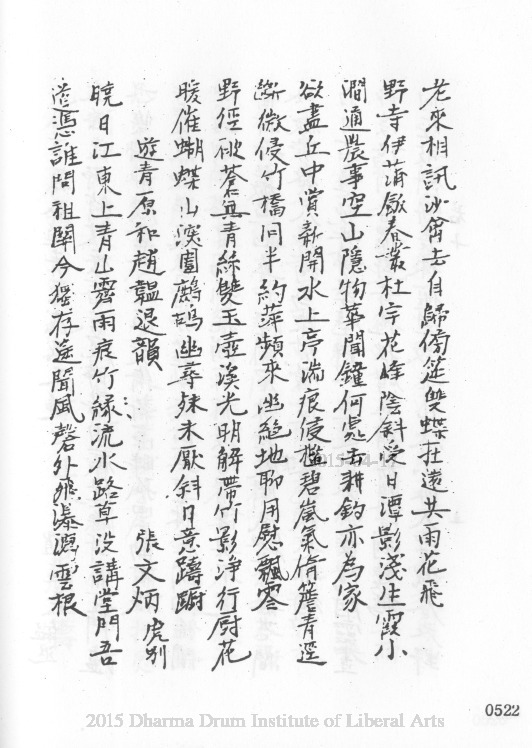 老來相訊沙笛去自歸傍筵雙蝶狂遶共雨花飛
野寺伊蒲飯春叢杜宇花峰陰斜受日潭影淺生霞小
澗通農事空山隱物華聞鐘何處去耕釣亦為家
欲盡丘中賞新開水上亭湍痕侵檻碧嵐氣倚簷青逕
斷微侵竹橋回半約萍頻來幽絕地聊用慰飄零
野徑破蒼無青絲雙玉壺溪光明解帶竹影淨行厨花
暖催蝴蝶山深圍鷓鴣幽尋殊未厭斜日意躊躕
遊青原和趙韞退韻
張文炳虎別
曉日江東上青山霽雨痕竹緣流水路草沒講堂門吾
道憑誰問祖關今獨存遙聞風磬外飛瀑濺雲根
0522
2015 Dharma Drum Institute of Liberal Arts